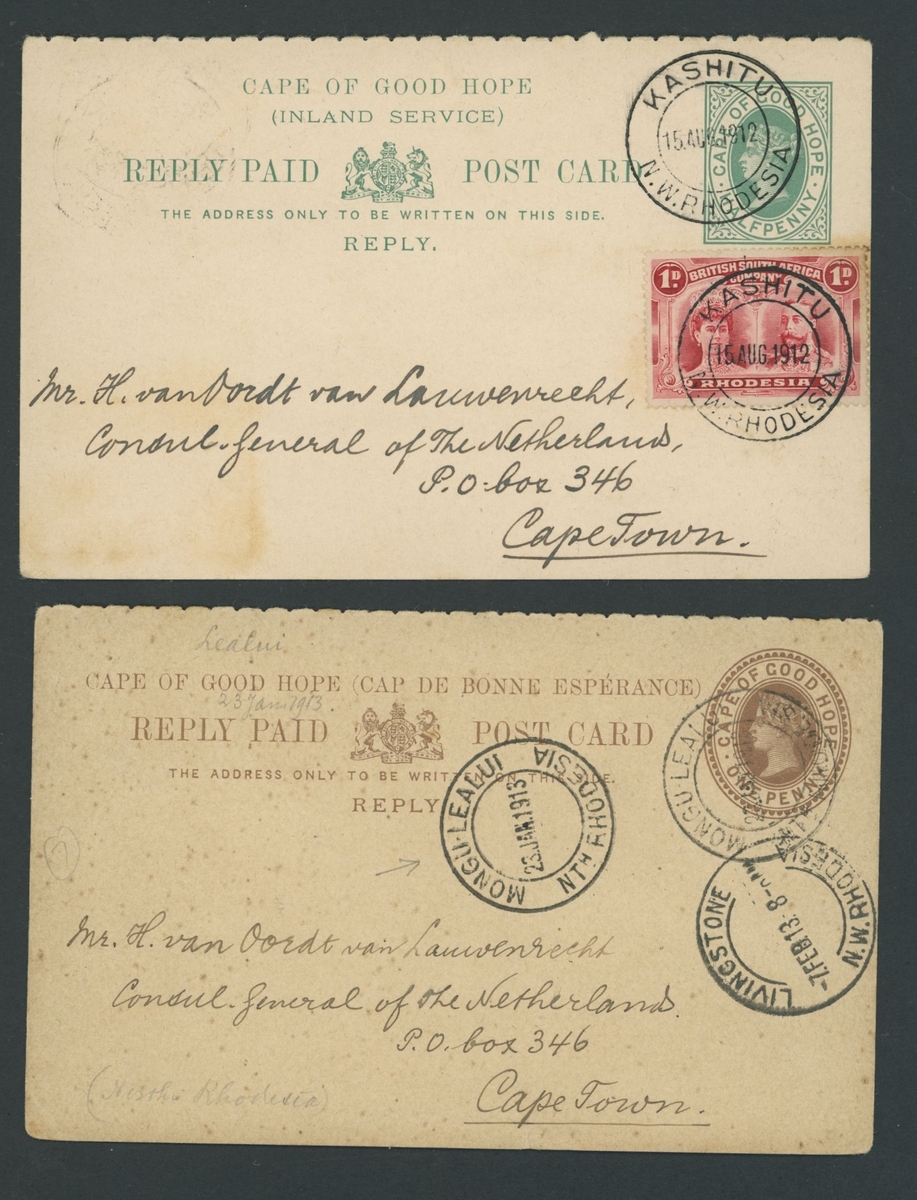 CAPE OF GOOD HOPE
(INLAND SERVICE)
REPLY PAID POST CARD
THE ADDRESS ONLY TO BE WRITTEN ON THIS SIDE.
REPLY.
KASHITU
15.AUG.1912
N.W.RHODESIA
CAPE OF GOOD HOPE
HALFPENNY
1D BRITISH SOUTH AFRICA 1D
COMPANY
RHODESIA
KASHITU
15.AUG.1912
N.W.RHODESIA
Mr. H. van Oordt van Lauwenrecht,
Consul-General of The Netherlands,
P.O. box 346
Cape Town.
Lealui
CAPE OF GOOD HOPE (CAP DE BONNE ESPÉRANCE)
23 Jan. 1913.
REPLY PAID POST CARD
THE ADDRESS ONLY TO BE WRITTEN ON THIS SIDE.
REPLY
CAPE OF GOOD HOPE
ONE PENNY
MONGU-LEALUI
RHODESIA
MONGU-LEALUI
23.JAN.1913
NTH RHODESIA
LIVINGSTONE
-7.FEB.13.8-
N.W. RHODESIA
7
Mr. H. van Oordt van Lauwenrecht
Consul-General of the Netherlands.
P.O. box 346
Cape Town.
(North Rhodesia)